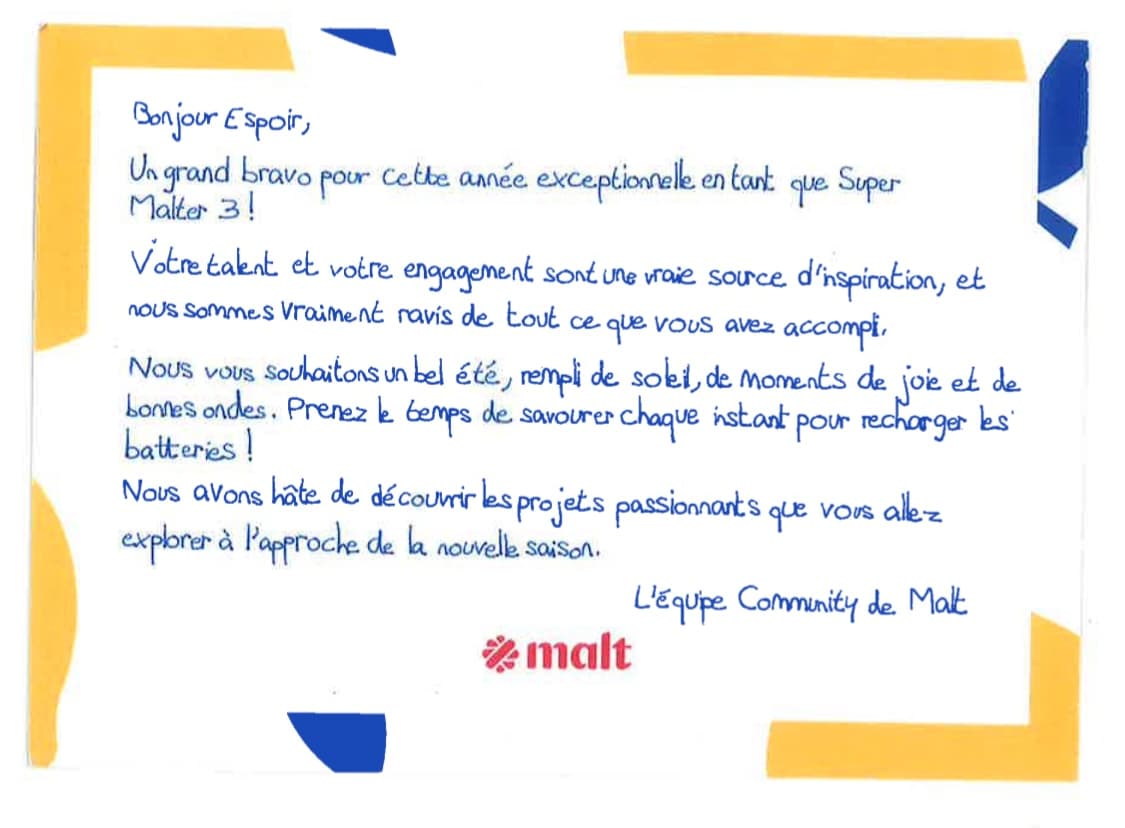 Bonjour Espoir,
Un grand bravo pour cette année exceptionnelle en tant que Super
Malter 3 !
Votre talent et votre engagement sont une vraie source d'inspiration, et
nous sommes vraiment ravis de tout ce que vous avez accompli.
Nous vous souhaitons un bel été, rempli de soleil, de moments de joie et de
bonnes ondes. Prenez le temps de savourer chaque instant pour recharger les
batteries !
Nous avons hâte de découvrir les projets passionnants que vous allez
explorer à l'approche de la nouvelle saison.
L'équipe Community de Malt
malt